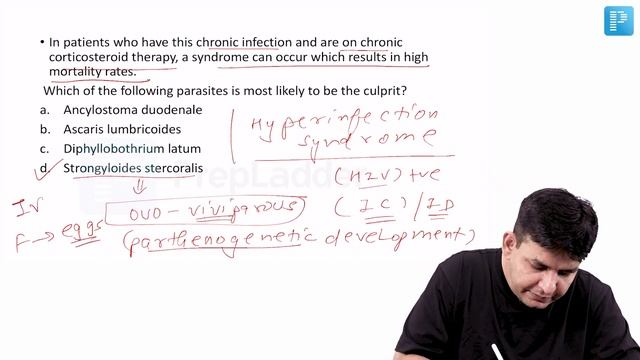 • In patients who have this chronic infection and are on chronic
corticosteroid therapy, a syndrome can occur which results in high
mortality rates.
Which of the following parasites is most likely to be the culprit?
a. Ancylostoma duodenale
b. Ascaris lumbricoides
c. Diphyllobothrium latum
d. Strongyloides stercoralis
Hyperinfection
syndrome
(HIV) +ve
(IC) / ID
PrepLadder
OVO - viviparous
IN
F → eggs (parthenogenetic development)